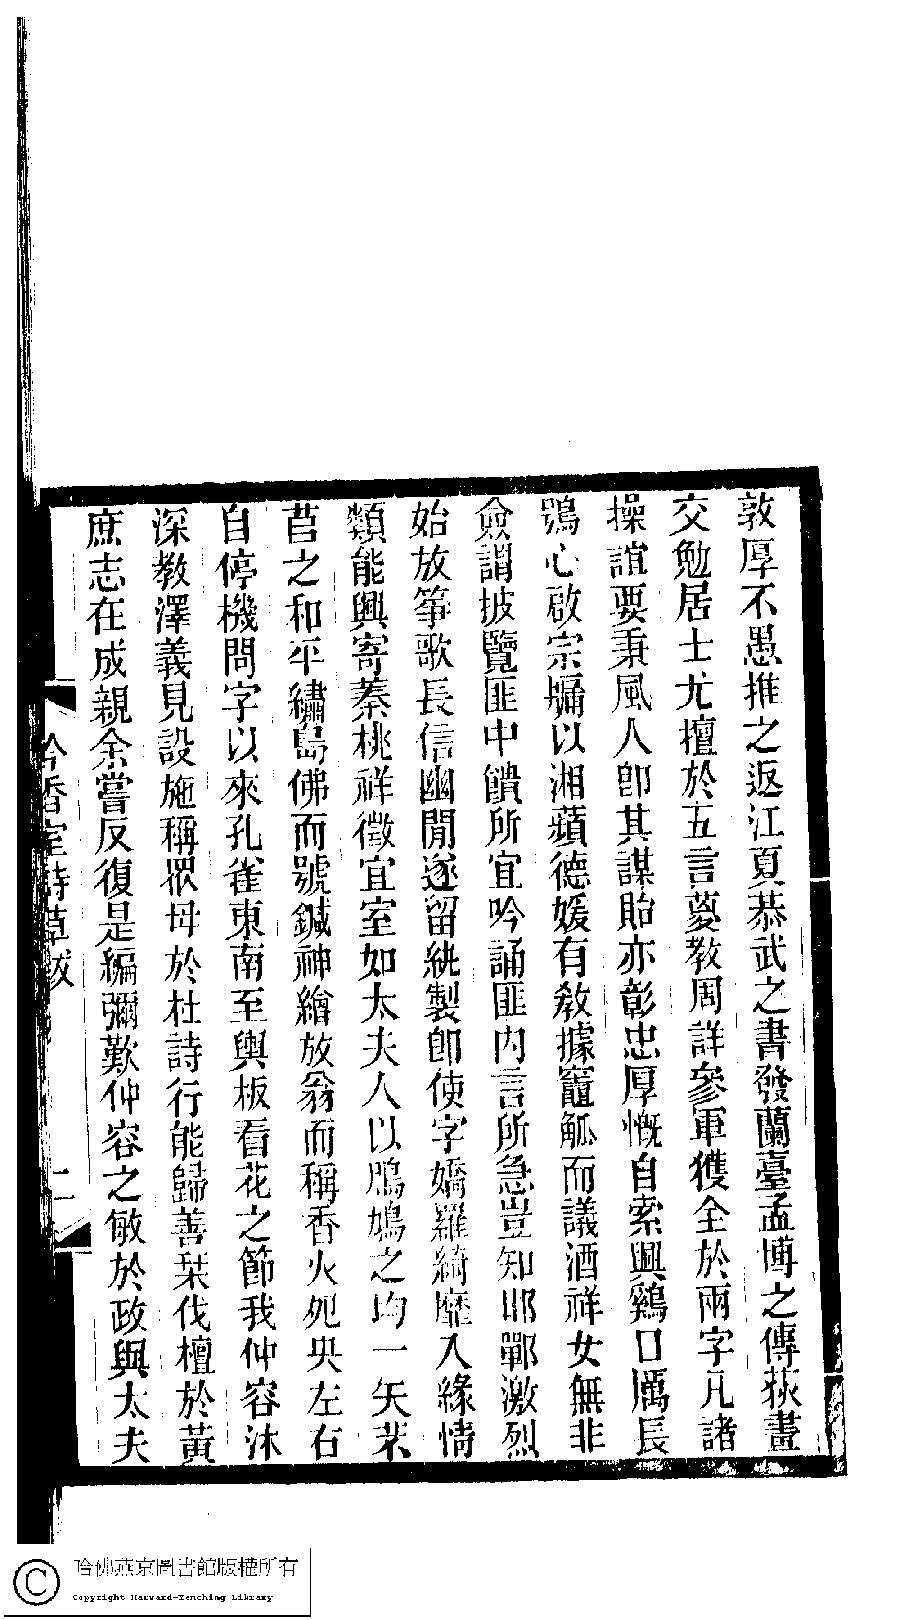 敦厚不愚推之返江夏恭武之書發蘭臺孟博之傳荻畫
交勉居士尤擅於五言蔆教周詳參軍獲全於兩字凡諸
操誼要秉風人卽其謀貽亦彰忠厚慨自索興鷄口厲長
鴞心啟宗牖以湘蘋德媛有敎據竈觚而議酒祥女無非
僉謂披覽匪中饋所宜吟誦匪内言所急豈知邯鄲激烈
始放箏歌長信幽閒遂留紈製卽使字嬌羅綺靡入緣情
類能興寄蓁桃祥徵宜室如太夫人以鳲鳩之均一矢芣
苢之和平繡島佛而號鍼神繪放翁而稱香火夗央左右
自停機問字以來孔雀東南至輿板看花之節我仲容沐
深教澤義見設施稱衆母於杜詩行能歸善栞伐檀於黃
庶志在成親余嘗反復是編彌歎仲容之敏於政與太夫
吟香室詩草跋
二
哈佛燕京圖書館版權所有
Copyright Harvard-Yenching Library